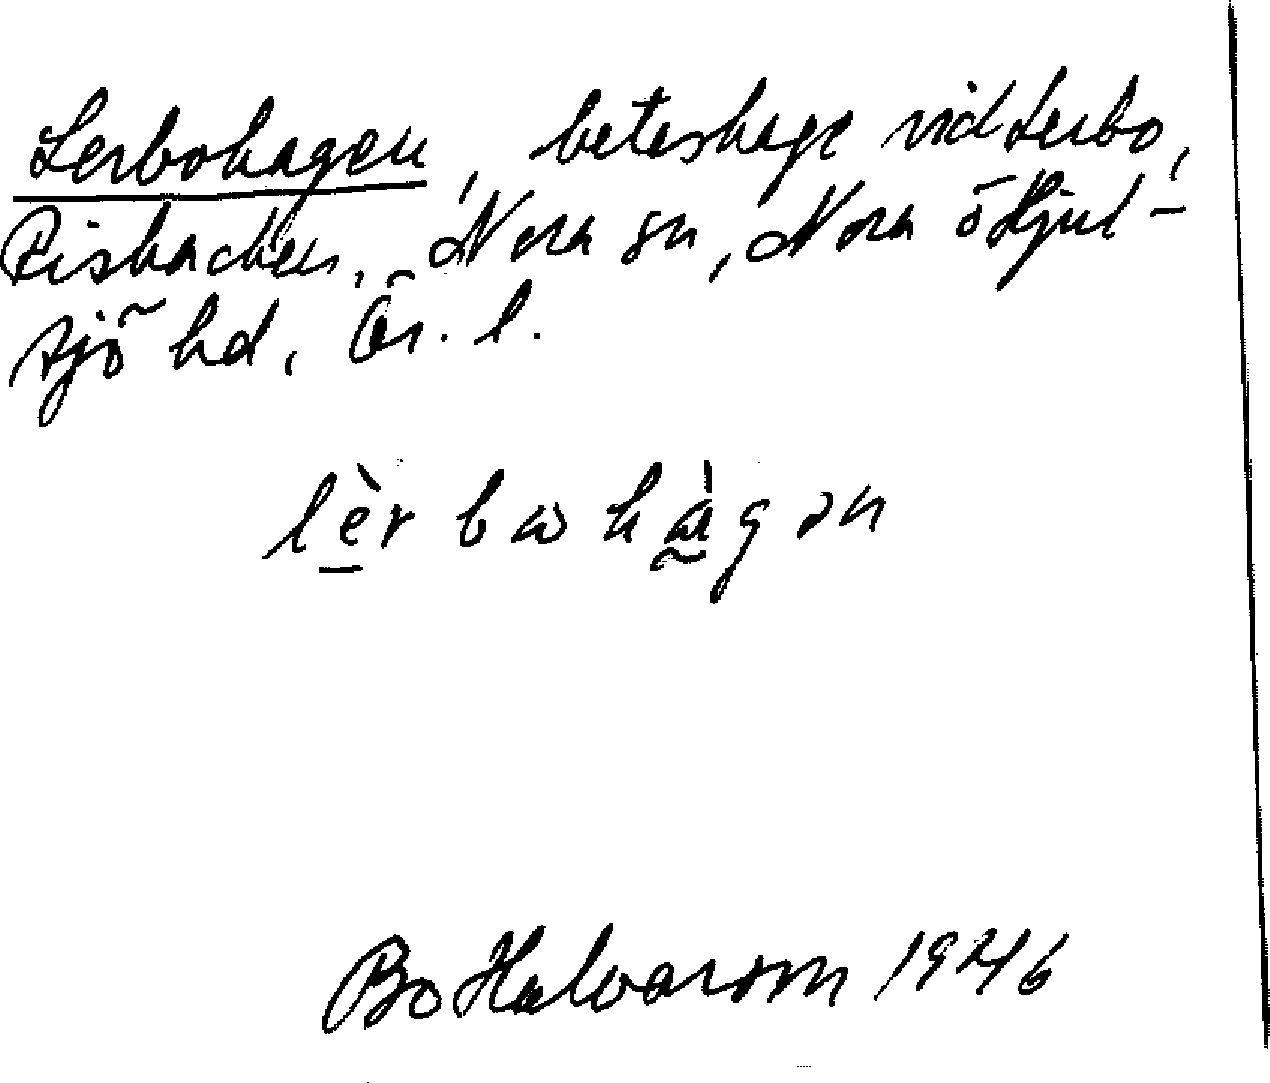 Lerbohagen, beteshage vid Lerbo,
Risbacken, Nora sn, Nora o Hjul-
sjö hd, Ör. l.
lèrbωhàgən
Bo Halvarson 1946